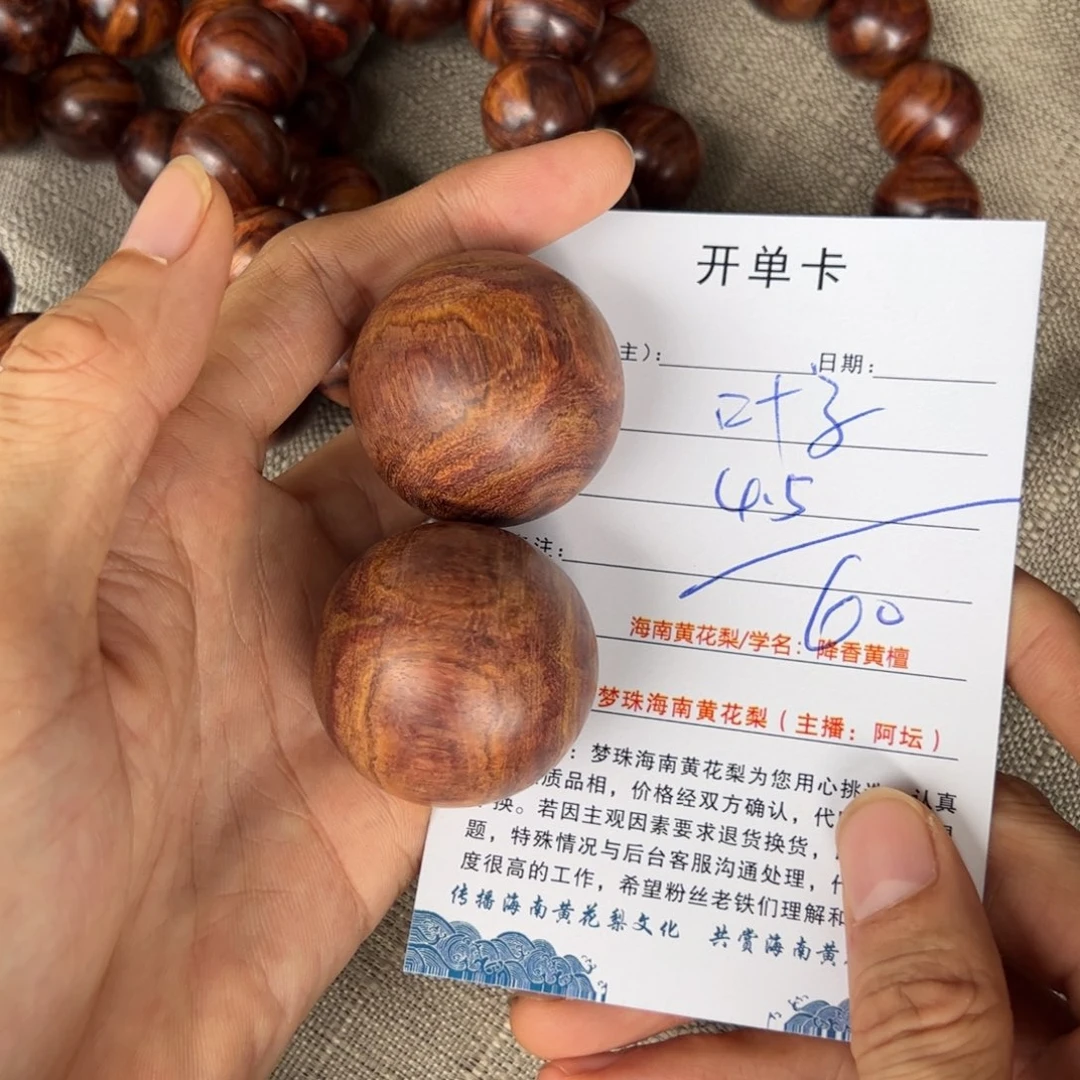 开单卡
主）： 日期：
叶子
4.5
注：
60
海南黄花梨/学名：降香黄檀
梦珠海南黄花梨（主播：阿坛）
：梦珠海南黄花梨为您用心挑 认真
质品相，价格经双方确认，代
换。若因主观因素要求退货换货，
题，特殊情况与后台客服沟通处理，
度很高的工作，希望粉丝老铁们理解和
传播海南黄花梨文化 共赏海南黄